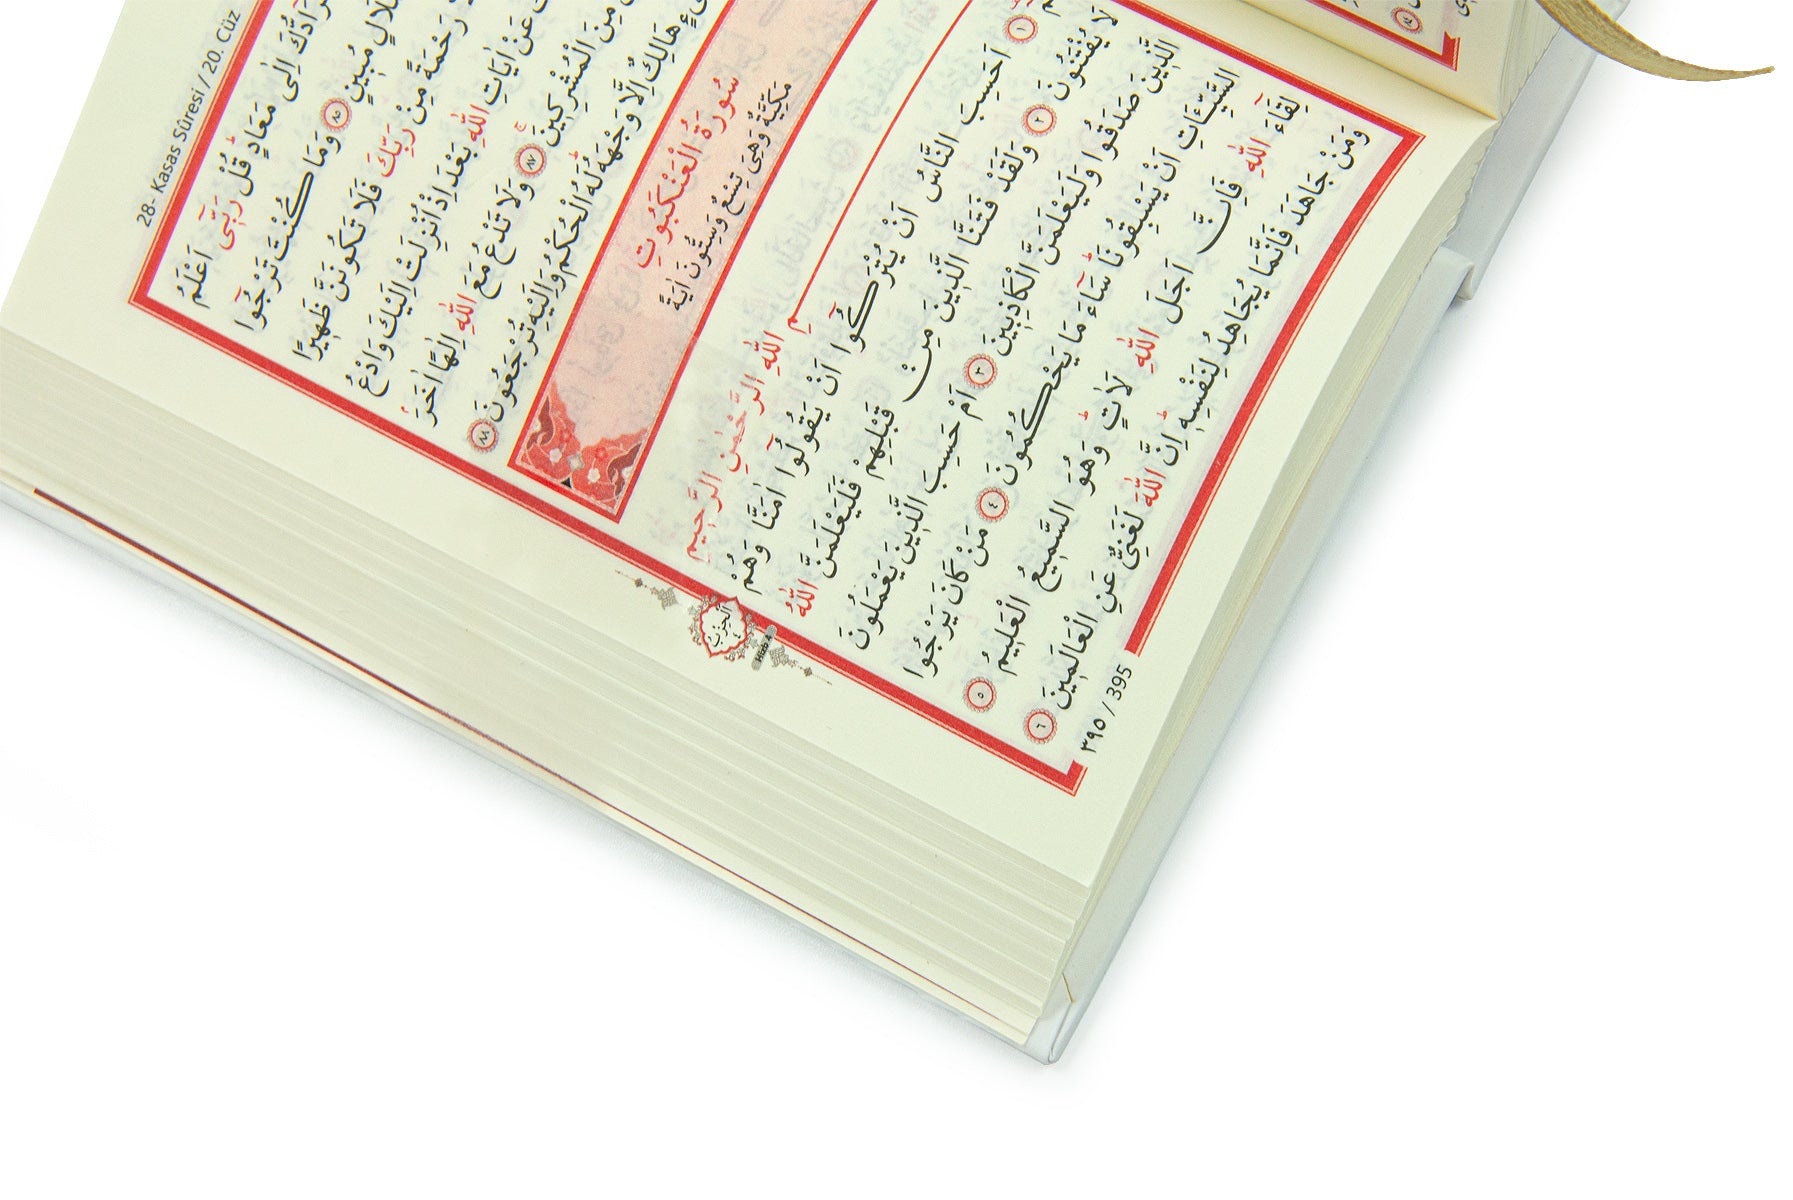 28- Kasas Sûresi / 20. Cüz
اِلٰى مَعَادٍۜ قُلْ رَبّ۪ٓى اَعْلَمُ
مُب۪ينٍ ٨٥ وَمَا كُنْتَ تَرْجُٓوا
رَحْمَةً مِنْ رَبِّكَ فَلَا تَكُونَنَّ ظَه۪يرًا
عَنْ اٰيَاتِ اللّٰهِ بَعْدَ اِذْ اُنْزِلَتْ اِلَيْكَ وَادْعُ
مِنَ الْمُشْرِك۪ينَۚ ٨٧ وَلَا تَدْعُ مَعَ اللّٰهِ اِلٰهًا اٰخَرَۢ
هَالِكٌ اِلَّا وَجْهَهُۜ لَهُ الْحُكْمُ وَاِلَيْهِ تُرْجَعُونَ ٨٨
سُورَةُ الْعَنْكَبُوتِ
مَكِّيَّةٌ وَهِىَ تِسْعٌ وَسِتُّونَ اٰيَةً
اللّٰهِ الرَّحْمٰنِ الرَّح۪يمِ
١ اَحَسِبَ النَّاسُ اَنْ يُتْرَكُٓوا اَنْ يَقُولُٓوا اٰمَنَّا وَهُمْ
لَا يُفْتَنُونَ ٢ وَلَقَدْ فَتَنَّا الَّذ۪ينَ مِنْ قَبْلِهِمْ فَلَيَعْلَمَنَّ اللّٰهُ
الَّذ۪ينَ صَدَقُوا وَلَيَعْلَمَنَّ الْكَاذِب۪ينَ ٣ اَمْ حَسِبَ الَّذ۪ينَ يَعْمَلُونَ
السَّيِّـَٔاتِ اَنْ يَسْبِقُونَاۜ سَٓاءَ مَا يَحْكُمُونَ ٤ مَنْ كَانَ يَرْجُوا
لِقَٓاءَ اللّٰهِ فَاِنَّ اَجَلَ اللّٰهِ لَاٰتٍۜ وَهُوَ السَّم۪يعُ الْعَل۪يمُ ٥
وَمَنْ جَاهَدَ فَاِنَّمَا يُجَاهِدُ لِنَفْسِه۪ۜ اِنَّ اللّٰهَ لَغَنِىٌّ عَنِ الْعَالَم۪ينَ ٦
اَلْحِزْبُ ٤
Hizb 4
٣٩٥ / 395